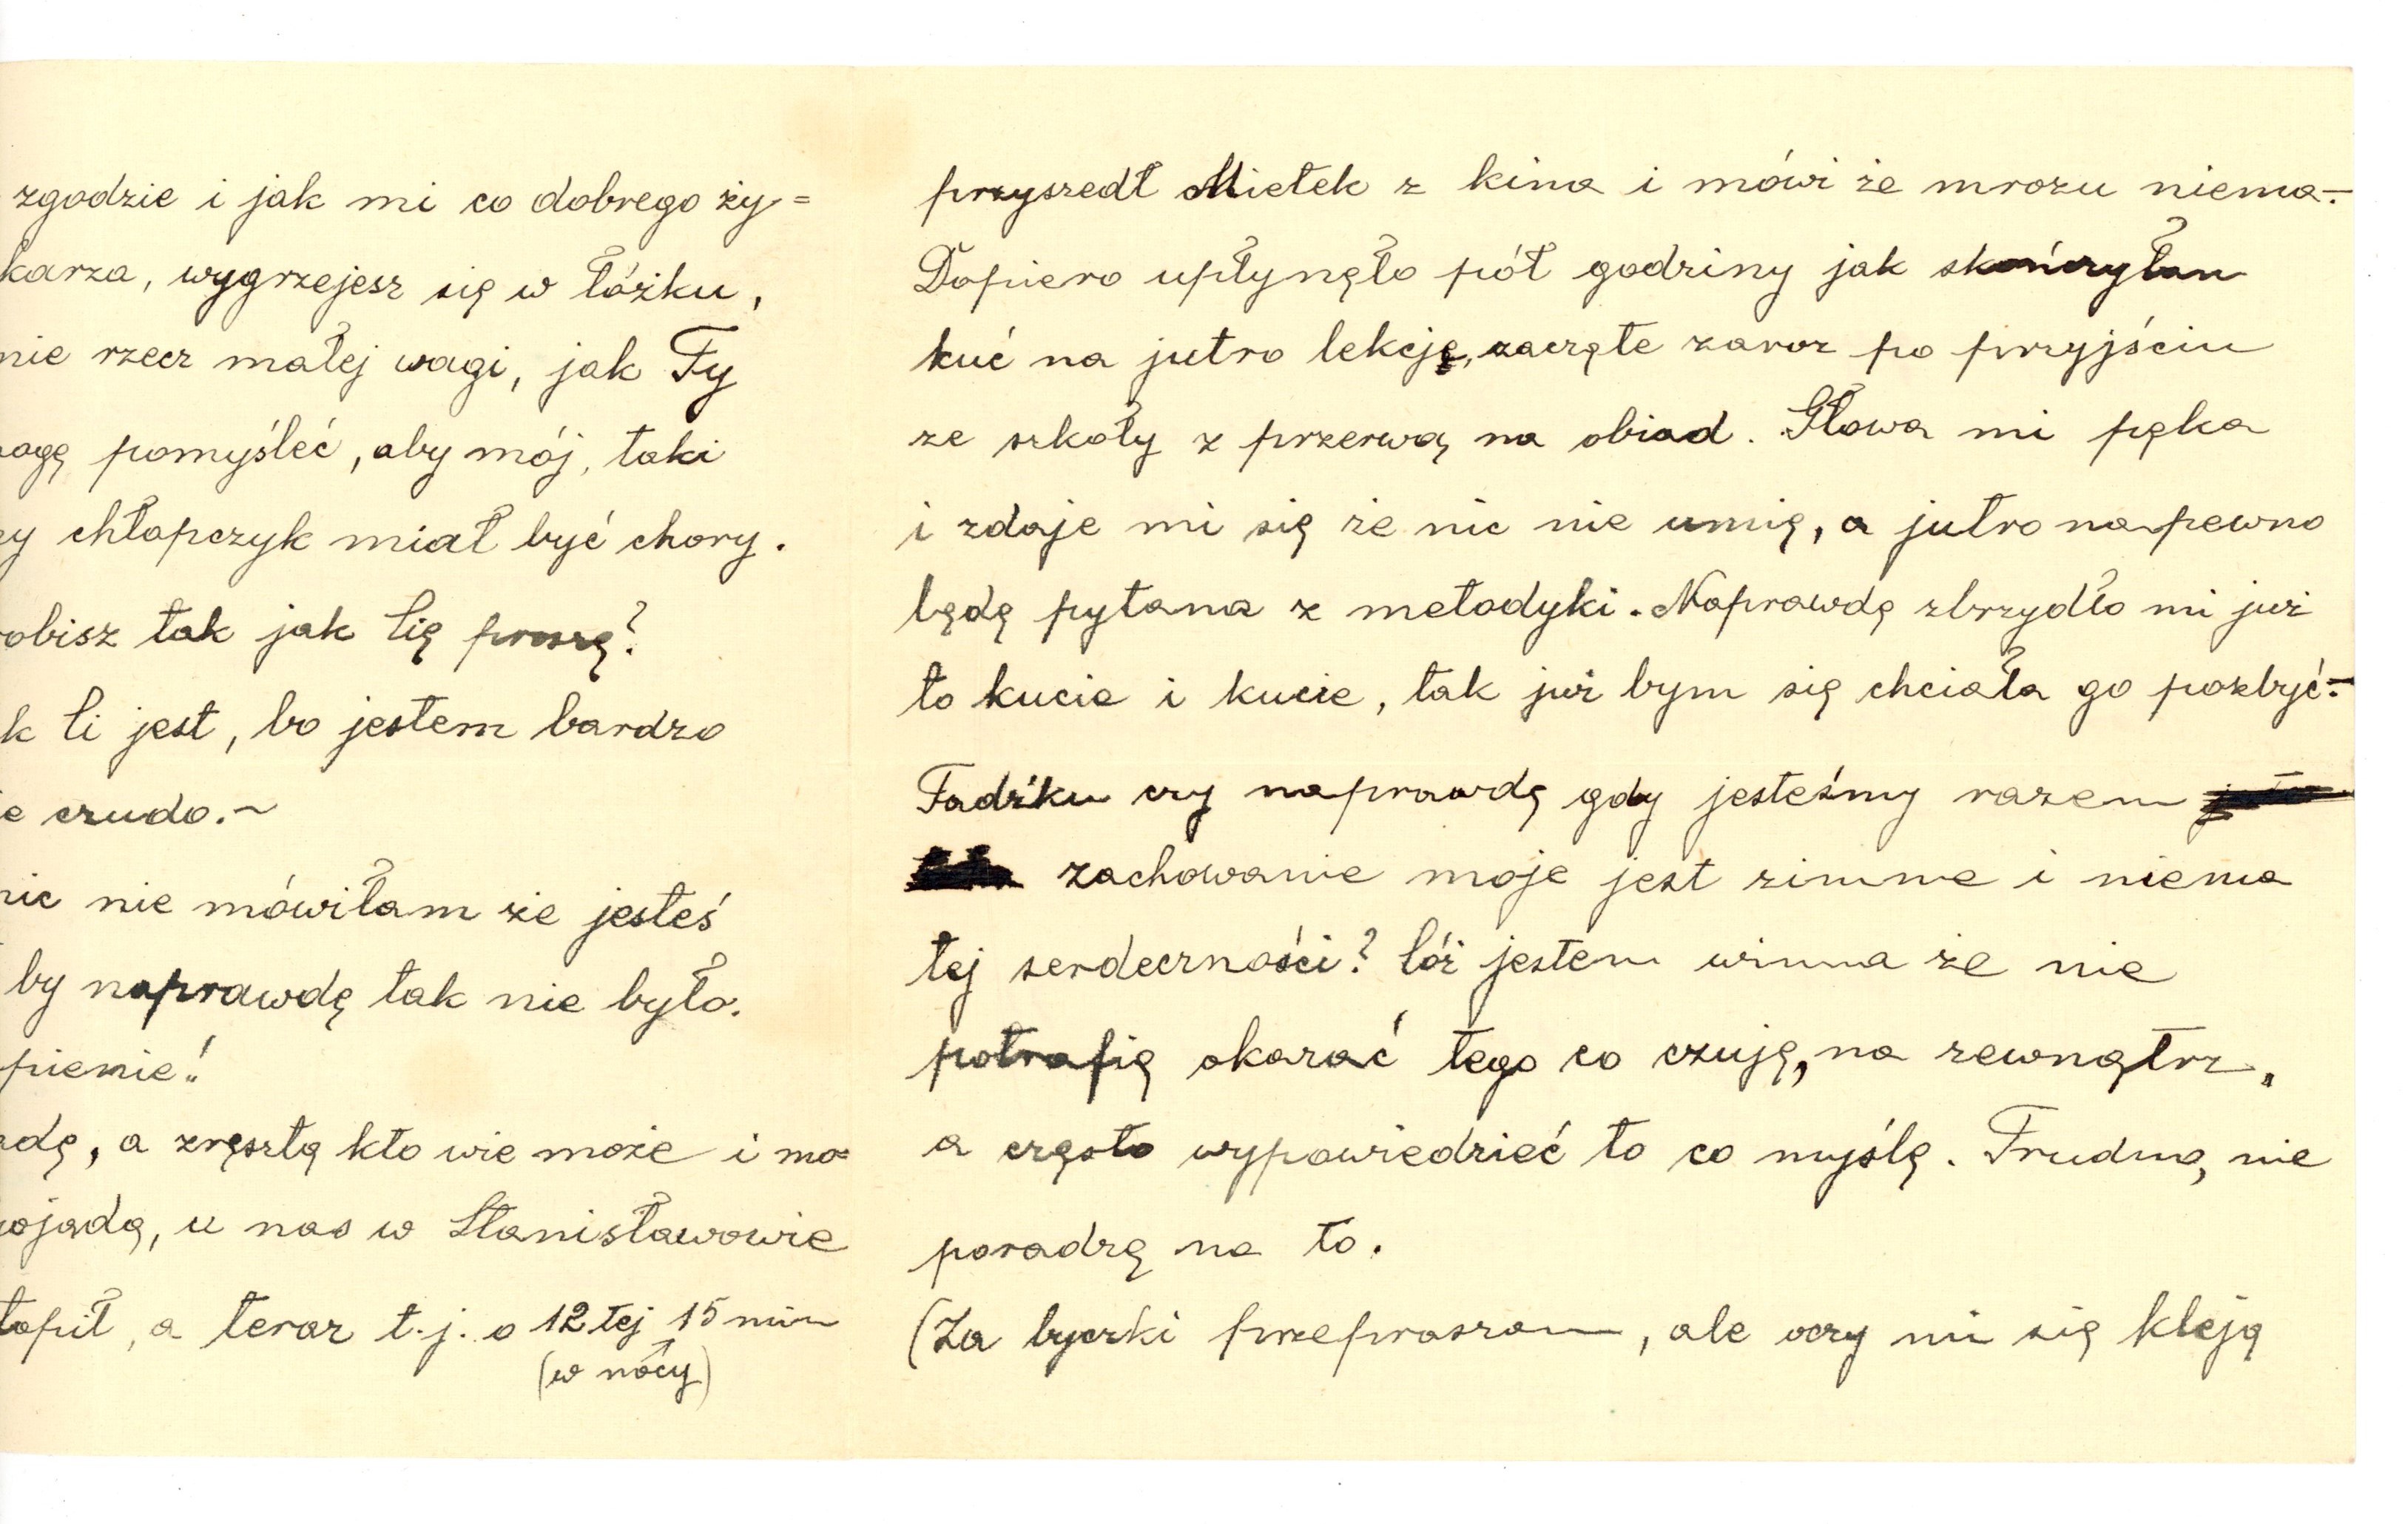 zgodzie i jak mi co dobrego ży=
karza, wygrzejesz się w łóżku,
nie rzecz małej wagi, jak Ty
ogę pomyśleć, aby mój, taki
y chłopczyk miał być chory.
obisz tak jak Cię proszę?
k Ci jest, bo jestem bardzo
e czudo.~
nic nie mówiłam że jesteś
by naprawdę tak nie było.
pienie!
adę, a zręsztą kto wie może i mo=
ojadą, u nas w Stanisławowie
topił, a teraz t.j. o 12tej 15 min
(w nocy)
przyszedł Mietek z kina i mówi że mrozu niema.-
Dopiero upłynęło pół godziny jak skończyłam
kuć na jutro lekcję, zaczęte zaraz po przyjściu
ze szkoły z przerwą na obiad. Głowa mi pęka
i zdaje mi się że nic nie umię, a jutro napewno
będę pytana z metodyki. Naprawdę zbrzydło mi już
to kucie i kucie, tak już bym się chciała go pozbyć.-
Tadźku czy naprawdę gdy jesteśmy razem
zachowanie moje jest zimne i niema
tej serdeczności? Cóż jestem winna że nie
potrafię okazać tego co czuję, na zewnątrz,
a często wypowiedzieć to co myślę. Trudno, nie
poradzę na to.
(Za byczki przepraszam, ale oczy mi się kleją